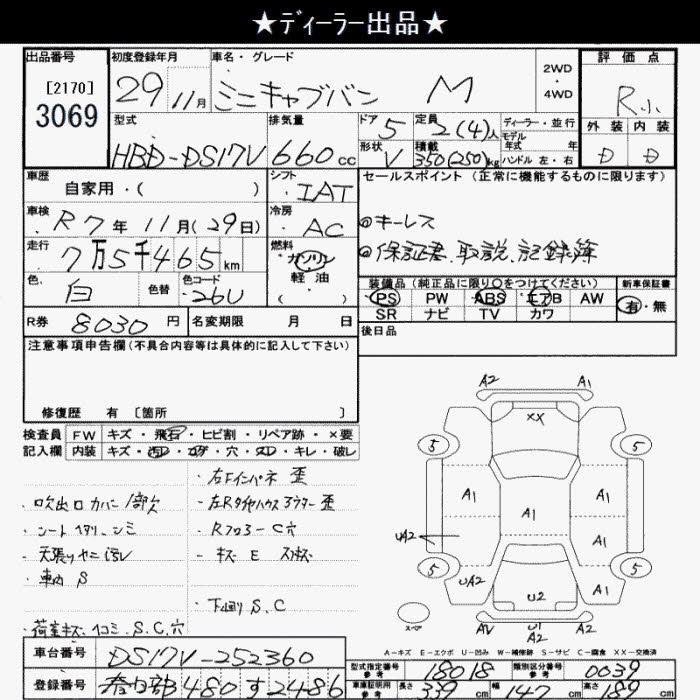 ★ディーラー出品★
出品番号 [2170] 3069
初度登録年月 29 11月
車名・グレード ミニキャブバン M
2WD ・ 4WD
評価点 R小
外装 D 内装 D
型式 HBD-DS17V
排気量 660cc
ドア 5 形状 V
定員 2(4)人 積載 350(250)kg
ディーラー・並行
モデル年式 年
ハンドル 左・右
車歴 自家用・( )
シフト IAT
セールスポイント(正常に機能するものに限ります)
車検 R7年 11月(29日)
冷房 AC
◎キーレス
走行 7万5千465km
燃料 ガソリン 軽油 ( )
◎保証書、取説、記録簿
色 白 色替 色コード 26U
装備品(純正品に限り○をつけてください)
PS PW ABS エアB AW
SR ナビ TV カワ
新車保証書 有・無
R券 8030円
名変期限 月 日
後日品
注意事項申告欄(不具合内容等は具体的に記入して下さい)
修復歴 有 [箇所 ]
検査員記入欄
FW キズ・飛石・ヒビ割・リペア跡・×要
内装 キズ・汚レ・コゲ・穴・スレ・キレ・破レ
・吹出口カバー1部欠
・シートヘタリ、シミ
・天張りヤニ汚レ
・車内 S
・荷室キズ、凹コミ、S、C、穴
・右Fインパネ 歪
・左Rタイヤハウスアウター 歪
・Rフロアー C穴
・キズ E スリキズ
・下回り S、C
A2 A1
XX
5 5
A1 A1 A1
UA2 A1
5 5
UA2 A1
U2
スペア
AV U1 A2 A2
A-キズ E-エクボ U-凹み W-補修跡 S-サビ C-腐食 XX-交換済
車台番号 DS17V-252360
登録番号 春日部 480 す 2486
型式指定番号 参考 18018
類別区分番号 参考 0039
車庫証明用 参考 長さ 339cm 幅 147cm 高さ 189cm